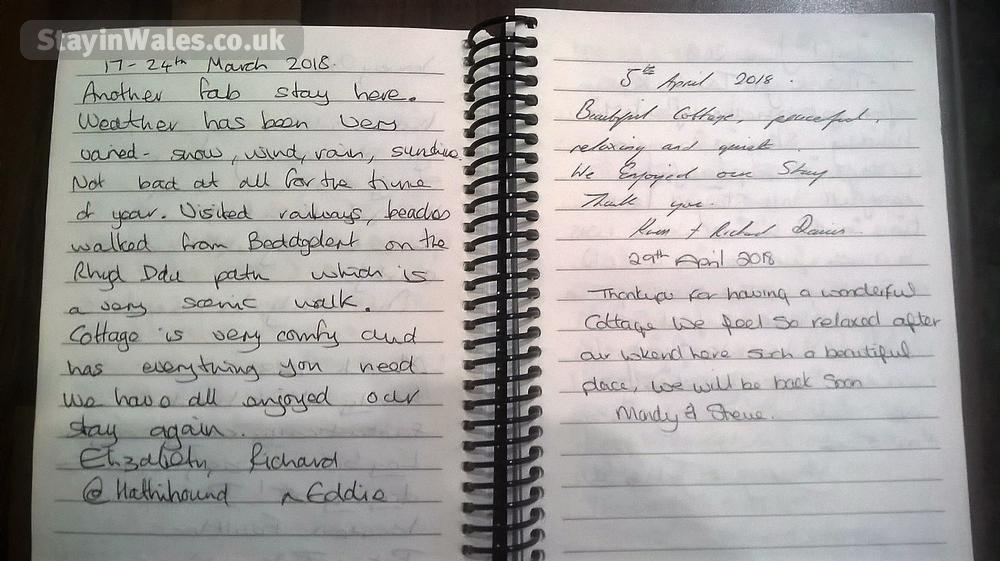 StayinWales.co.uk
17-24th March 2018.
Another fab stay here.
Weather has been very
varied - snow, wind, rain, sunshine.
Not bad at all for the time
of year. Visited railways, beaches
walked from Beddgelert on the
Rhyd Ddu path which is
a very scenic walk.
Cottage is very comfy and
has everything you need
We have all enjoyed our
stay again.
Elizabeth, Richard
@Hathihound Eddie
5th April 2018.
Beautiful Cottage, peaceful,
relaxing and quiet.
We Enjoyed our Stay
Thank you.
+ Richard Davies
29th April 2018
Thankyou for having a wonderful
Cottage We feel so relaxed after
our wkend here such a beautiful
place, we will be back soon
Mandy & Steve.